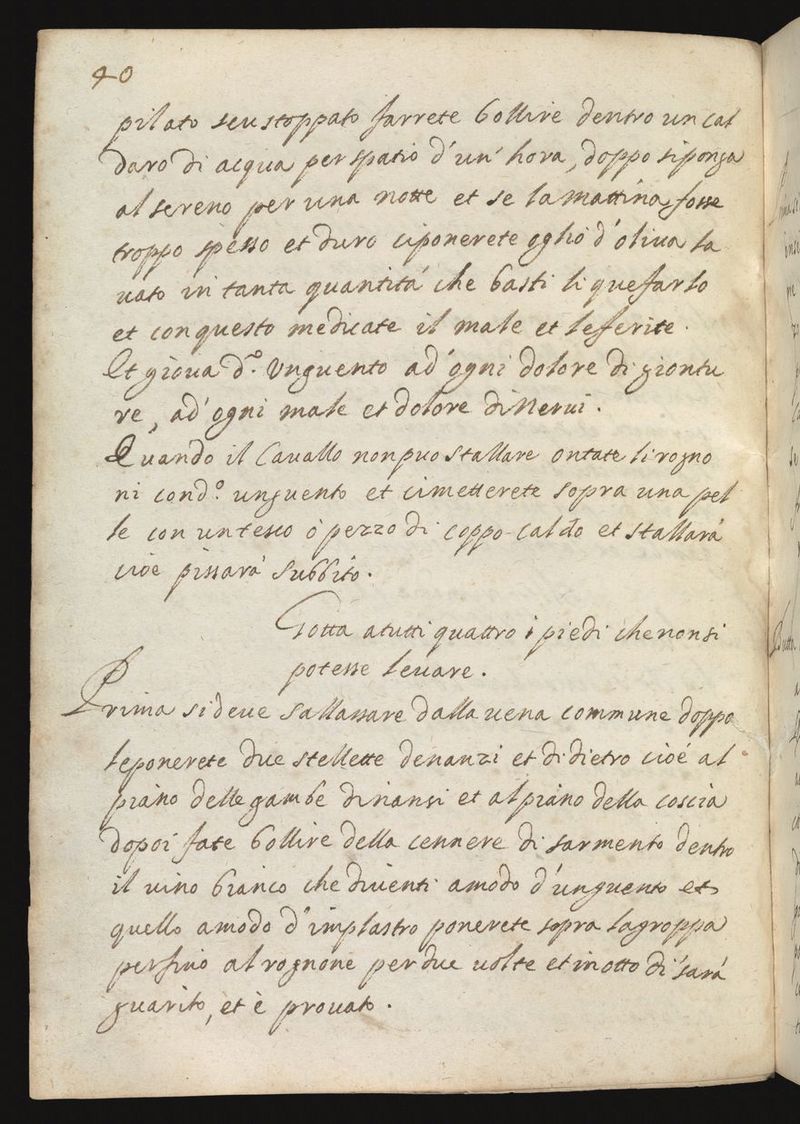 40
pilato seu stoppato farrete bollire dentro un cal
daro di acqua per spatio d'un' hora, doppo si ponga
al sereno per una notte et se la mattina fosse
troppo spesso et duro ci ponerete oglio d'oliva la
vato in tanta quantitá che basti liquefarlo
et con questo medicate il male et le ferite.
Et giova d.º Unguento ad' ogni dolore di giontu
re, ad' ogni male et dolore di Nervi.
Quando il Cavallo non puo stallare ontate li rogno
ni con d.º unguento et ci metterete sopra una pel
le con un tesco ó pezzo di coppo caldo et stallará
cioé pissará subbito.
Gotta a tutti quattro i piedi che non si
potesse levare.
Prima si deve sallassare dalla vena commune doppo
le ponerete due stellette denanzi et di dietro cioé al
piano delle gambe dinansi et al piano della coscia
dopoi fate bollire della cennere di sarmento dentro
il vino bianco che diventi a modo d'unguento et
quello a modo d'implastro ponerete sopra la groppa
per fino al rognone per due volte et in otto di' sará
guarito, et è provato.